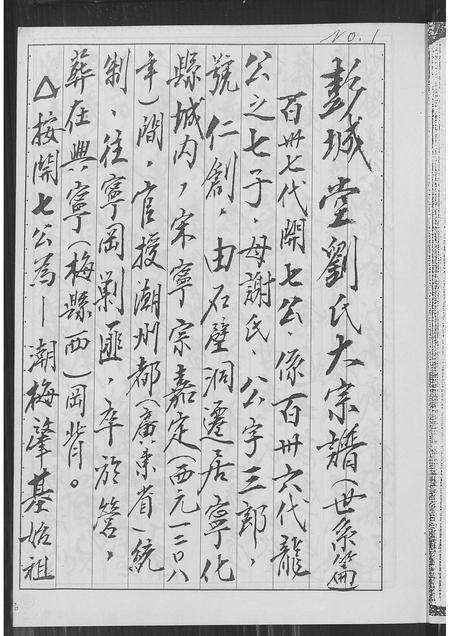 NO.1
彭城堂劉氏大宗譜(世系篇
百卅七代開七公,係百卅六代龍
公之七子,母謝氏、公字三郎,
號仁創,由石壁洞遷居寧化
縣城內,宋寧宗嘉定(西元一二〇八
年)間,官授潮州都(廣東省)統
制,往寧岡剿匪,卒於營,
葬在興寧(梅縣西)岡背。
△按開七公為—潮梅肇基始祖